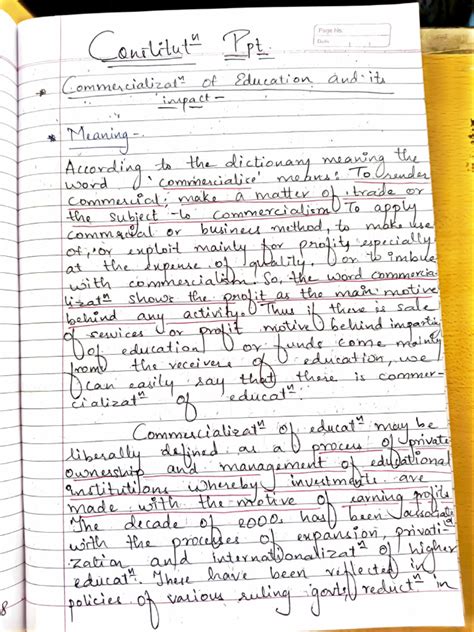 Page No.
Date
Constitutⁿ Ppt.
* Commercializatⁿ of Education and its
impact -
* Meaning -
According to the dictionary meaning the
word 'commercialise' means: To render
commercial; make a matter of trade or
the subject to commercialism To apply
commercial or business method, to make use
of, or exploit mainly for profits especially
at the expense of quality, or to imbue
with commercialism. So, the word commercia-
lizatⁿ shows the profit as the main motive
behind any activity. Thus if there is sale
of services or profit motive behind imparting
of education or funds come mainly
from the receivers of education, we
can easily say that there is commer-
cializatⁿ of educatⁿ.
Commercializatⁿ of educatⁿ may be
liberally defined as a process of private
ownership and management of educational
institutions whereby investments are
made with the motive of earning profits
The decade of 2000s has been associate
with the processes of expansion, privati-
zation and internationalizatⁿ of higher
educatⁿ. These have been reflected in
policies of various ruling govts, reductⁿ in
8